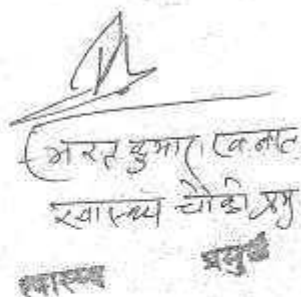 (भरत कुमार
स्वास्थ्य चौकी प्रमु
स्वास्थ्य प्रमुख